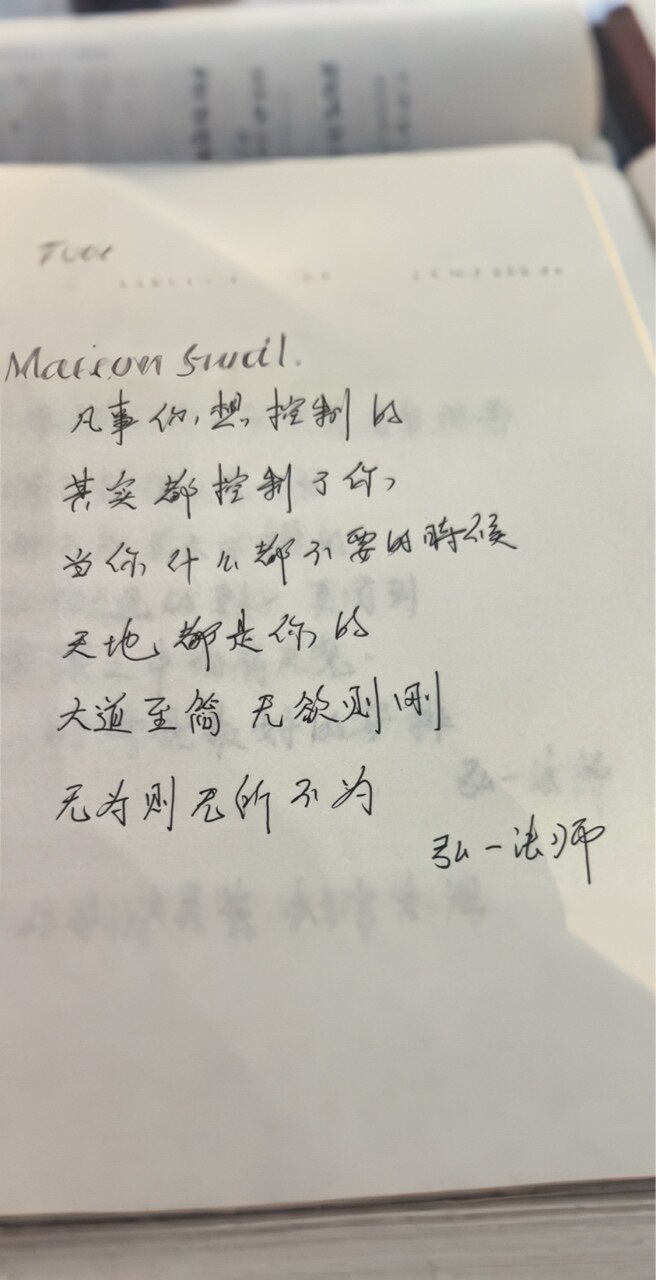 凡事你想控制的
其实都控制了你
当你什么都不要的時候
天地都是你的
大道至简 无欲则刚
无为则无所不为
弘一法师